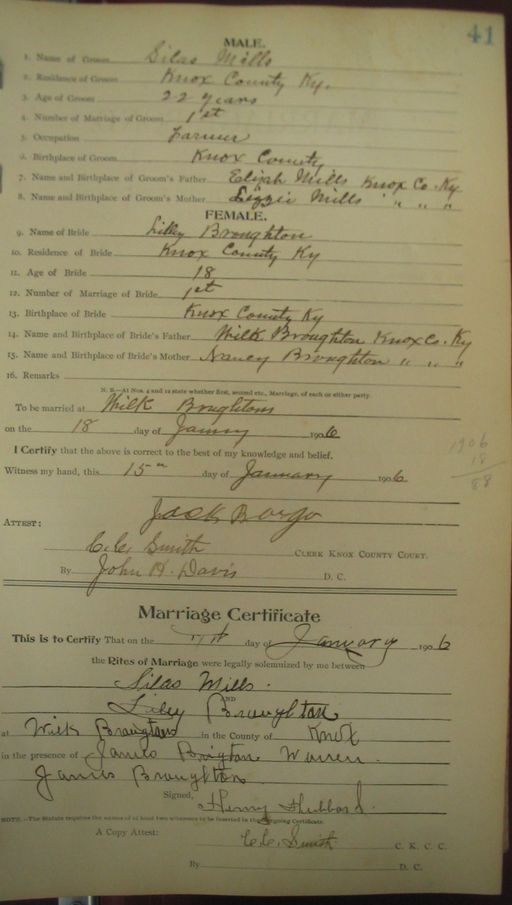 41
MALE.
1. Name of Groom Silas Mills
2. Residence of Groom Knox County Ky.
3. Age of Groom 22 years
4. Number of Marriage of Groom 1st
5. Occupation Farmer
6. Birthplace of Groom Knox County
7. Name and Birthplace of Groom's Father Elijah Mills Knox Co. Ky
8. Name and Birthplace of Groom's Mother Lizzie Mills " " "
FEMALE.
9. Name of Bride Lilly Broughton
10. Residence of Bride Knox County Ky
11. Age of Bride 18
12. Number of Marriage of Bride 1st
13. Birthplace of Bride Knox County Ky
14. Name and Birthplace of Bride's Father Wilk Broughton Knox Co. Ky
15. Name and Birthplace of Bride's Mother Nancy Broughton " " "
16. Remarks
N. B.—At Nos. 4 and 12 state whether first, second etc., Marriage, of each or either party.
To be married at Wilk Broughtons
on the 18 day of 1906
I Certify that the above is correct to the best of my knowledge and belief.
1906
18
88
Witness my hand, this 15th day of January 1906
Jack
ATTEST:
C. C. Smith CLERK KNOX COUNTY COURT.
By John H. Davis D. C.
Marriage Certificate
This is to Certify That on the day of January 1906
the Rites of Marriage were legally solemnized by me between
Silas Mills.
AND
Liley Broughton
at Wilk Broughtons in the County of Knox
in the presence of James Warren.
James Broughton
Signed, Henry Hubbard.
NOTE.—The Statute requires the names of at least two witnesses to be inserted in the foregoing Certificate.
A Copy Attest: C. C. Smith C. K. C. C.
By D. C.